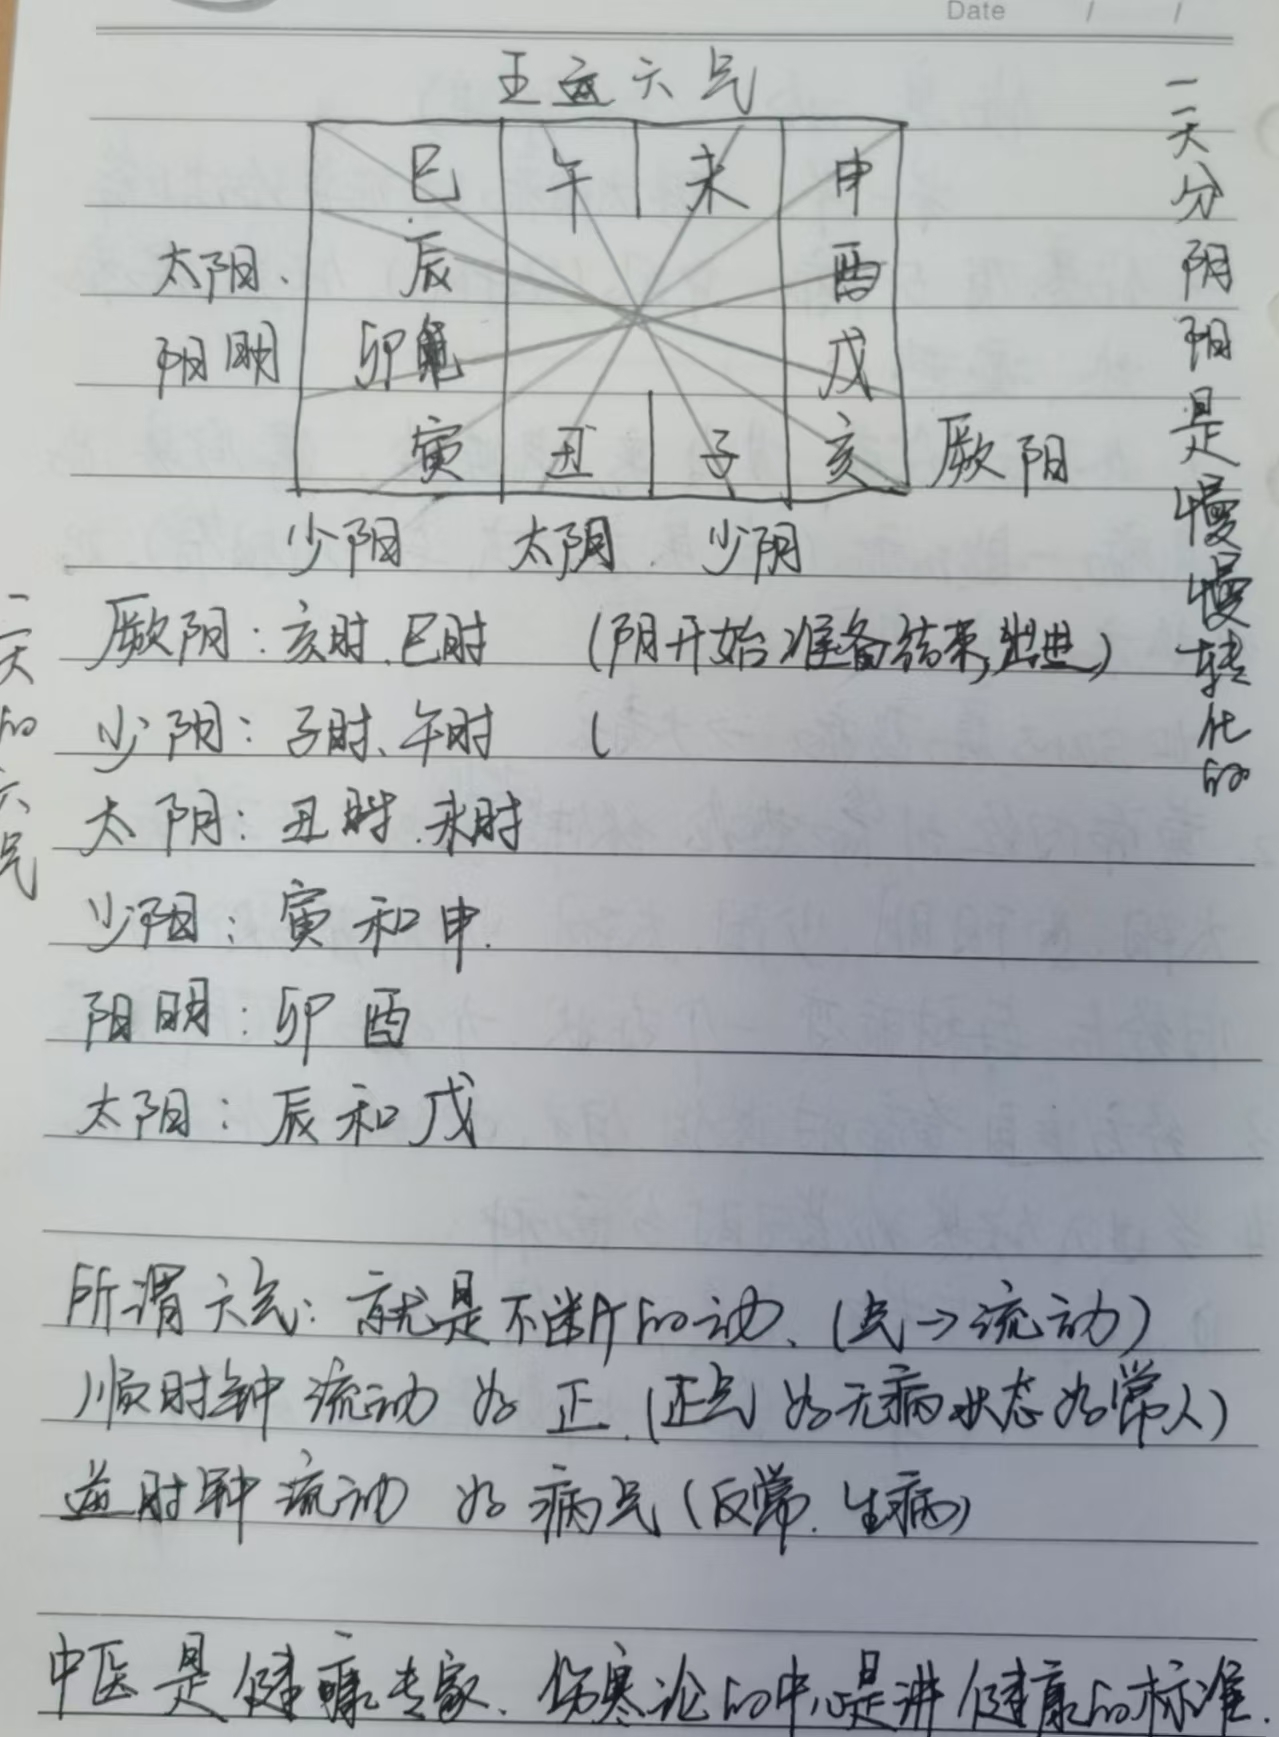 Date / /
五运六气
巳 午 未 申
太阳、 辰 酉
阳明 卯 戌
寅 丑 子 亥 厥阴
少阳 太阴 少阴
一天分阴阳是慢慢转化的
一天的六气
厥阴:亥时、巳时 (阴开始准备结束,出进)
少阴:子时、午时 (
太阴:丑时、未时
少阳:寅和申.
阳明:卯酉
太阳:辰和戌
所谓六气:就是不断的动、(气→流动)
顺时钟流动为正.(正气为无病状态为常人)
逆时钟流动为病气(反常.生病)
中医是健康专家、伤寒论的中心是讲健康的标准.